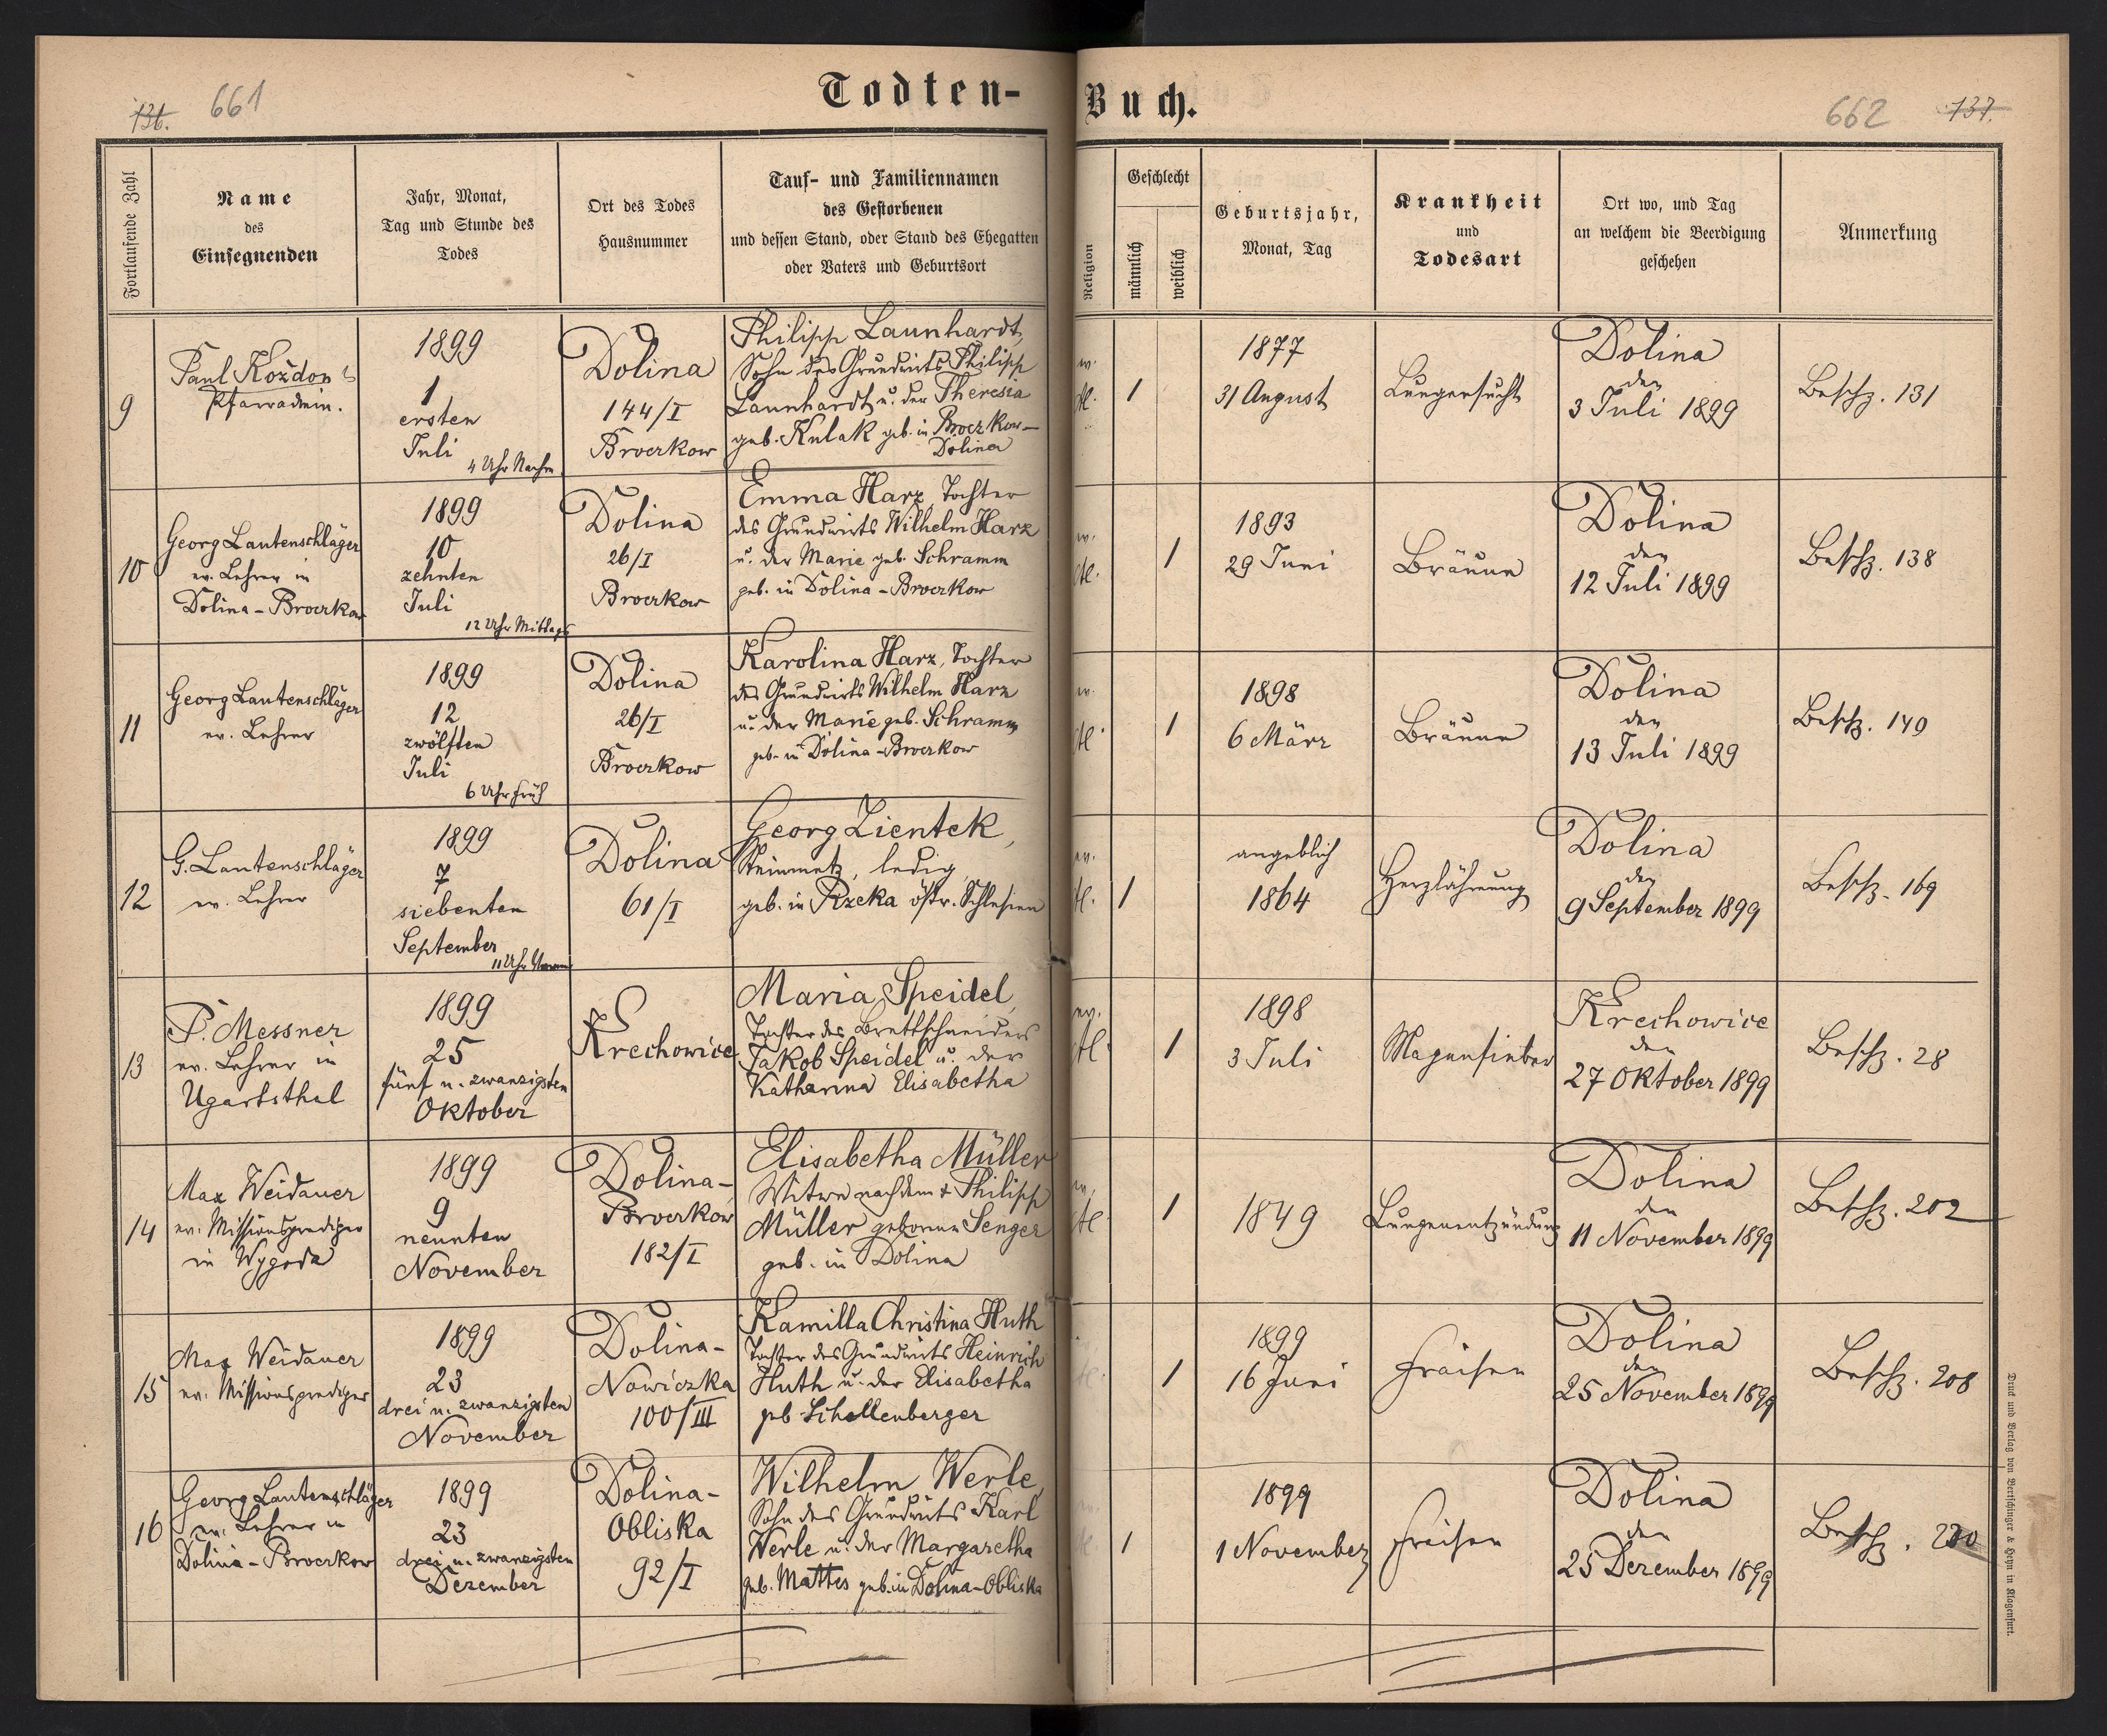 136.
661
Todten-
Buch.
662
737.
Fortlaufende Zahl
Name
des
Einsegnenden
Jahr, Monat,
Tag und Stunde des
Todes
Ort des Todes
Hausnummer
Tauf- und Familiennamen
des Gestorbenen
und dessen Stand, oder Stand des Ehegatten
oder Vaters und Geburtsort
Religion
Geschlecht
männlich
weiblich
Geburtsjahr,
Monat, Tag
Krankheit
und
Todesart
Ort wo, und Tag
an welchem die Beerdigung
geschehen
Anmerkung
9
Paul Kożdoń
Pfarradmin.
1899
1
ersten
Juli
4 Uhr Nachm
Dolina
144/I
Broczkow
Philipp Launhardt,
Sohn des Grundwirts Philipp
Launhardt u. der Theresia
geb. Kulak geb. in Broczkow-
Dolina
1
1877
31 August
Lungensucht
Dolina
den
3 Juli 1899
Beschz. 131
10
Georg Lautenschläger
ev. Lehrer in
Dolina-Broczkow
1899
10
zehnten
Juli
12 Uhr Mittags
Dolina
26/I
Broczkow
Emma Harz, Tochter
des Grundwirts Wilhelm Harz
u. der Marie geb. Schramm
geb. in Dolina-Broczkow
1
1893
29 Juni
Bräune
Dolina
den
12 Juli 1899
Beschz. 138
11
Georg Lautenschläger
ev. Lehrer
1899
12
zwölften
Juli
6 Uhr früh
Dolina
26/I
Broczkow
Karolina Harz, Tochter
des Grundwirts Wilhelm Harz
u. der Marie geb. Schramm
geb. in Dolina-Broczkow
1
1898
6 März
Bräune
Dolina
den
13 Juli 1899
Beschz. 140
12
G. Lautenschläger
ev. Lehrer
1899
7
siebenten
September
11 Uhr
Dolina
61/I
Georg Zientek,
Steinmetz, ledig,
geb. in Rzeka östr. Schlesien
1
angeblich
1864
Herzlähmung
Dolina
den
9 September 1899
Beschz. 169
13
P. Messner
ev. Lehrer in
Ugartsthal
1899
25
fünf u. zwanzigsten
Oktober
Krechowice
Maria Speidel,
Tochter des Brettschneiders
Jakob Speidel u. der
Katharina Elisabetha
ev.
1
1898
3 Juli
Magenfieber
Krechowice
den
27 Oktober 1899
Beschz. 28
14
Max Weidauer
ev. Missionsprediger
in Wygoda
1899
9
neunten
November
Dolina-
Broczkow
182/I
Elisabetha Müller
Witwe nach dem + Philipp
Müller geborene Senger
geb. in Dolina
1
1849
Lungenentzündung
Dolina
den
11 November 1899
Beschz. 202
15
Max Weidauer
ev. Missionsprediger
1899
23
drei u. zwanzigsten
November
Dolina-
Nowiczka
100/III
Kamilla Christina Huth
Tochter des Grundwirts Heinrich
Huth u. der Elisabetha
geb Schollenberger
1
1899
16 Juni
Fraisen
Dolina
den
25 November 1899
Beschz. 208
16
Georg Lautenschläger
ev. Lehrer in
Dolina-Broczkow
1899
23
drei u. zwanzigsten
Dezember
Dolina-
Obliska
92/I
Wilhelm Werle,
Sohn des Grundwirts Karl
Werle u. der Margaretha
geb. Mattes geb. in Dolina-Obliska
1
1899
1 November
Fraisen
Dolina
den
25 Dezember 1899
Beschz. 220
Druck und Verlag von Bertschinger & Heyn in Klagenfurt.